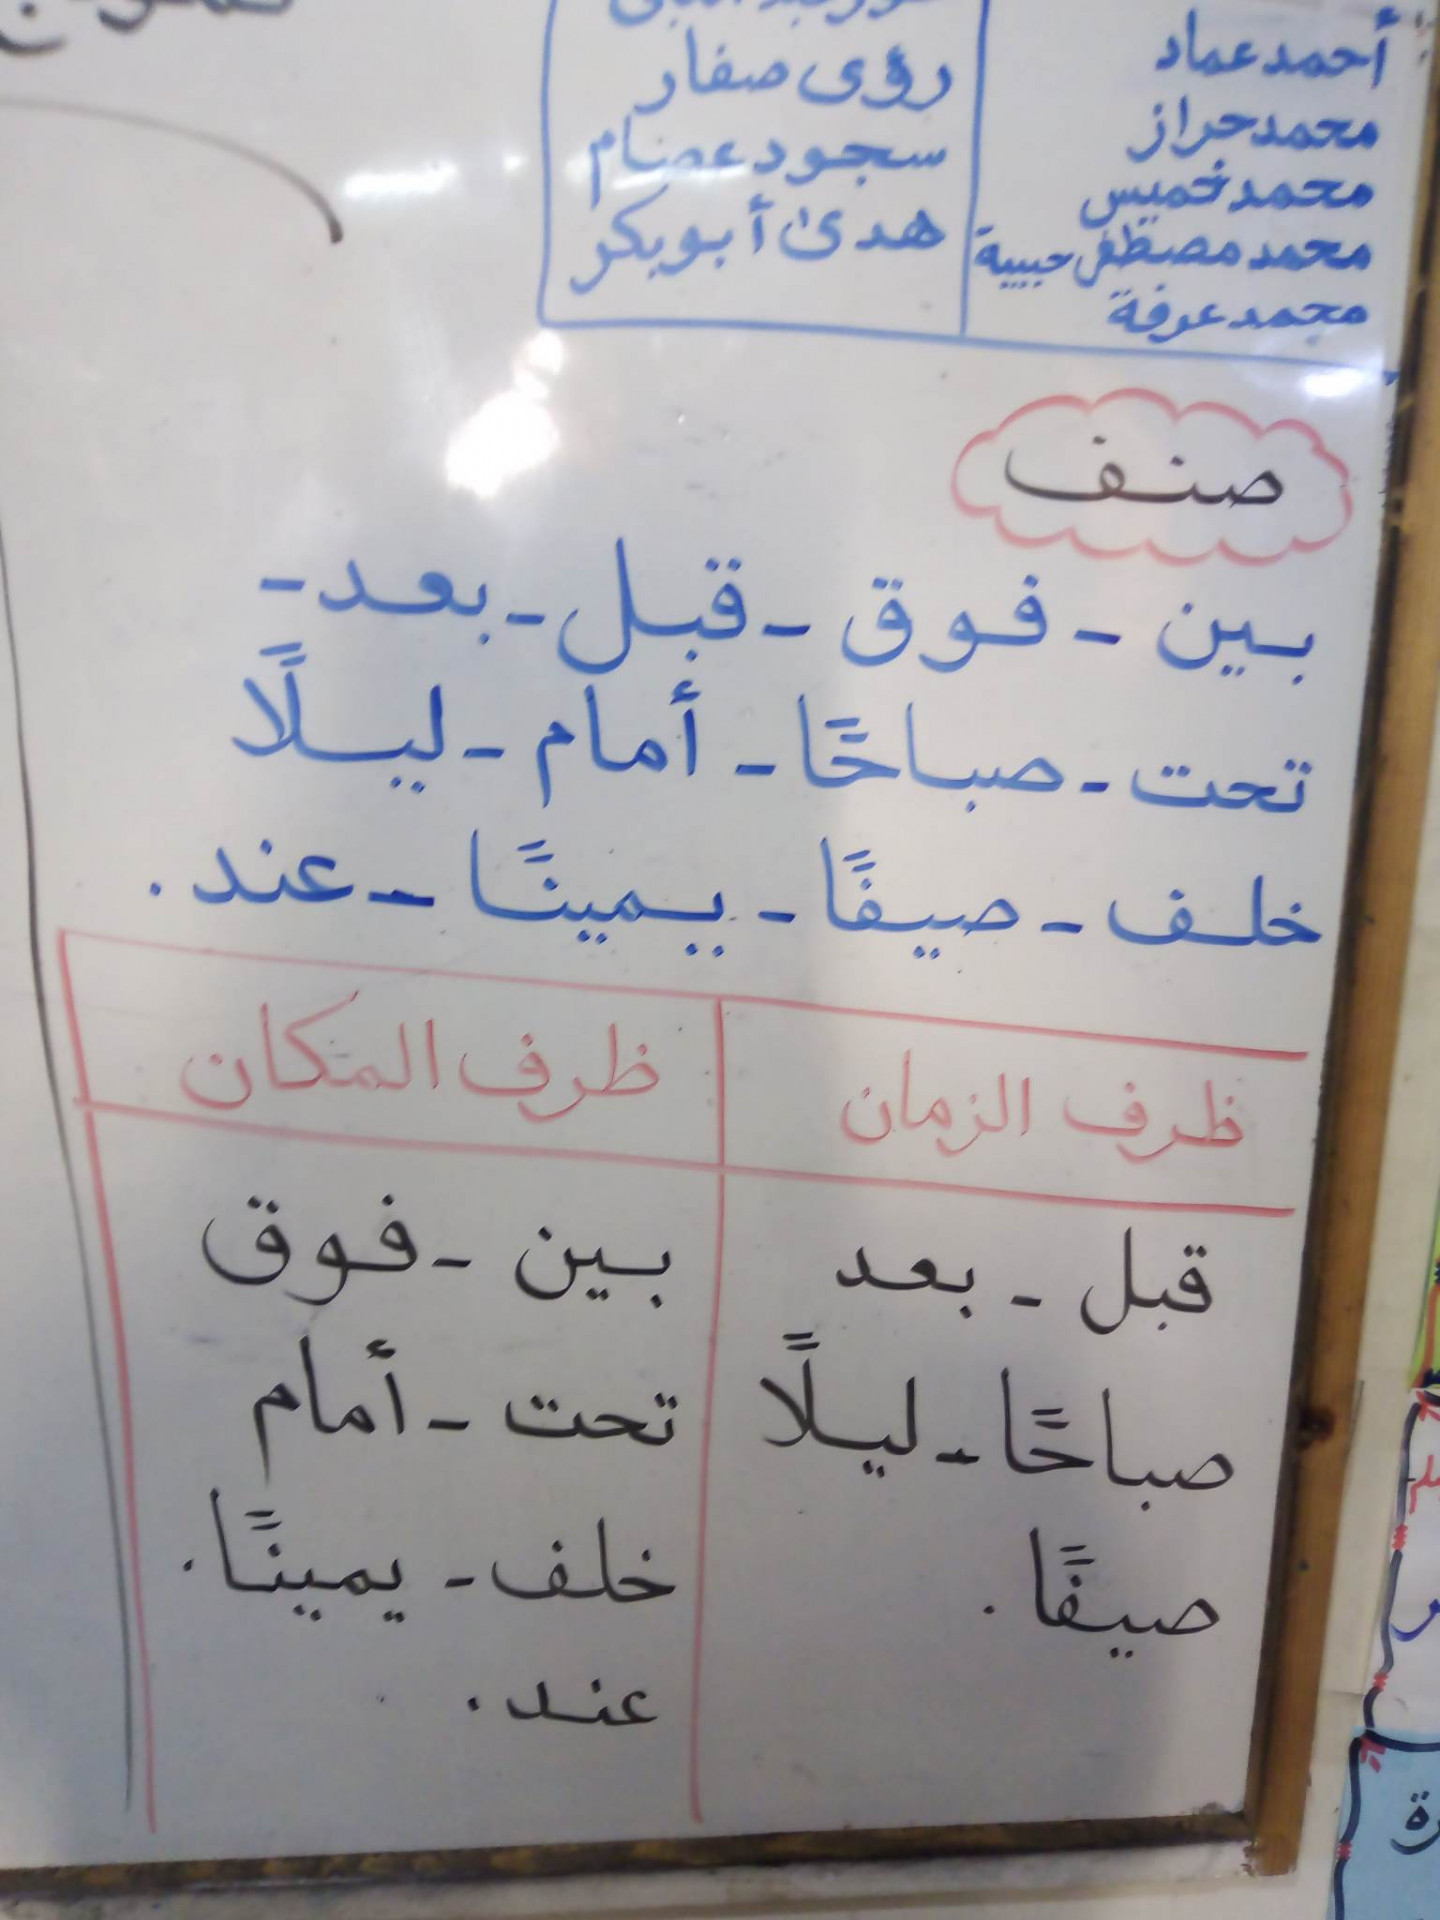 أحمد عماد
محمد حراز
محمد خميس
محمد مصطفى حبيبة
محمد عرفة
رؤى صفار
سجود عصام
هدى أبو بكر
صنف
بين - فوق - قبل - بعد -
تحت - صباحًا - أمام - ليلًا
خلف - صيفًا - يمينًا - عند .
ظرف الزمان
قبل - بعد
صباحًا - ليلًا
صيفًا .
ظرف المكان
بين - فوق
تحت - أمام
خلف - يمينًا .
عند .